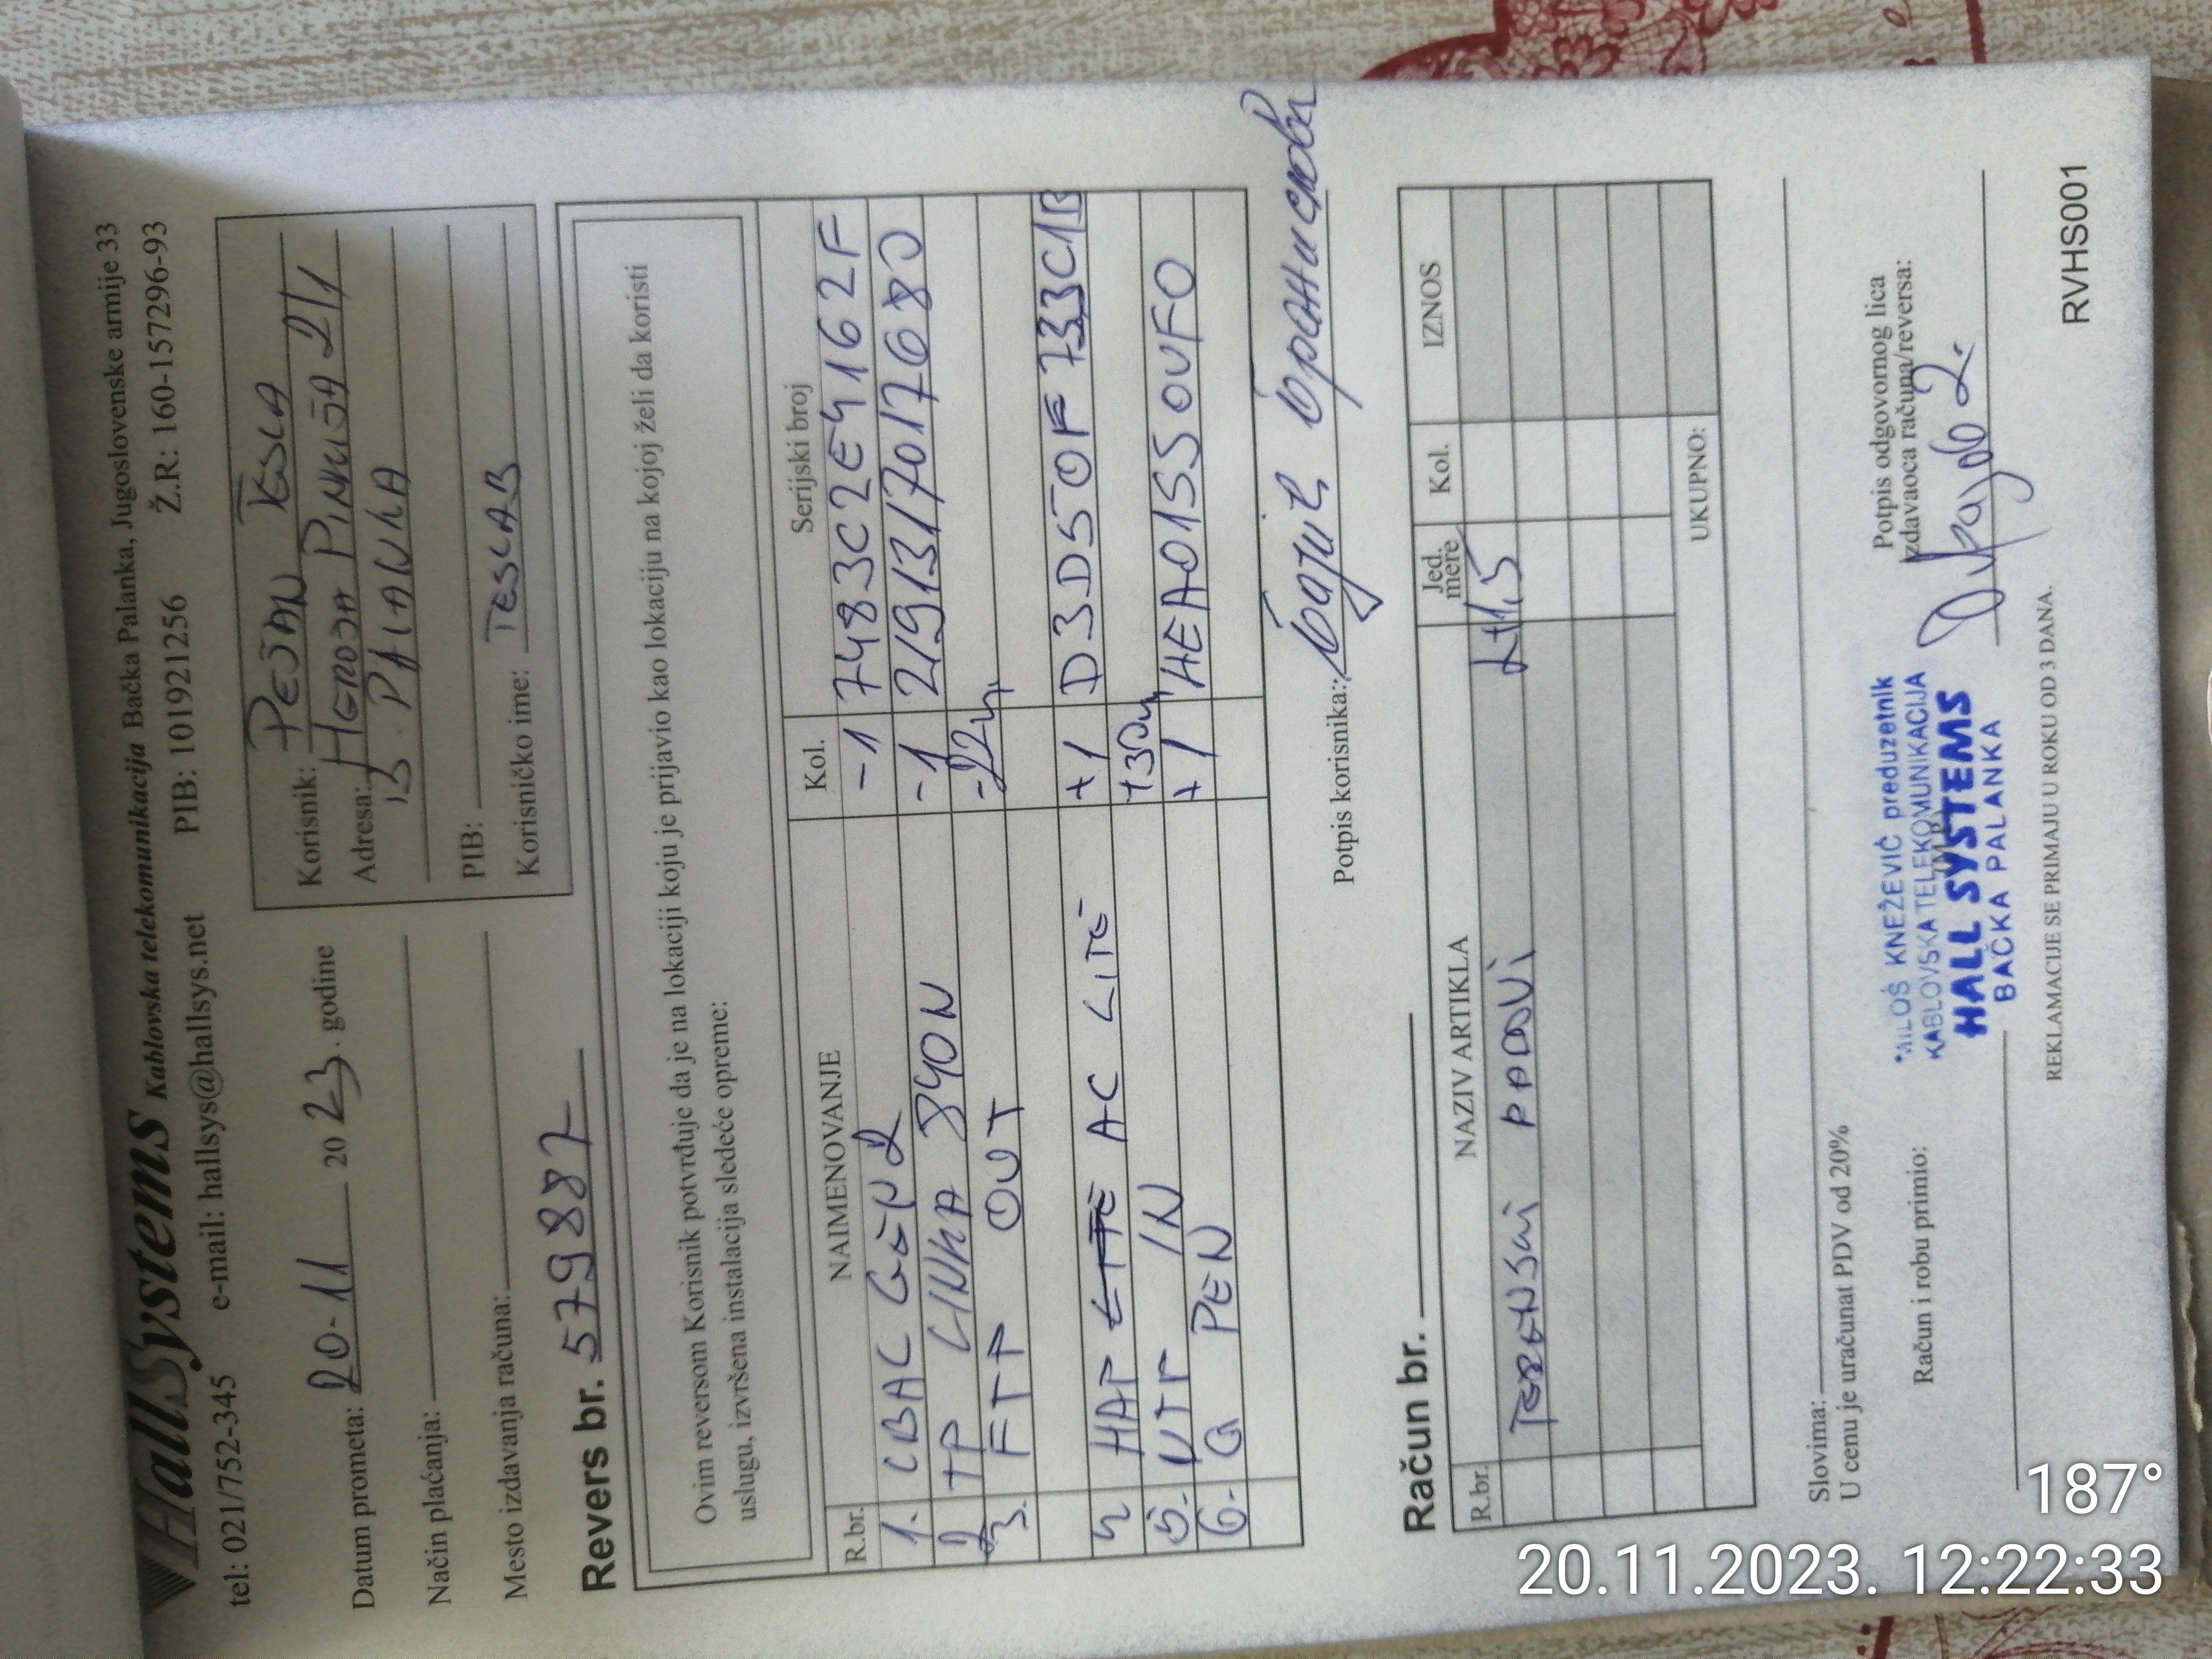 HallSystems Kablovska telekomunikacija Bačka Palanka, Jugoslovenske armije 33
tel: 021/752-345 e-mail: hallsys@hallsys.net PIB: 101921256 Ž.R: 160-157296-93
Datum prometa: 20-11 2023. godine
Način plaćanja:
Mesto izdavanja računa:
Korisnik: PEJAN TESLA
Adresa: HEROJA PINKIJA 2/1
B. PALANKA
PIB:
Korisničko ime: TESLAB
Revers br. 579887
Ovim reversom Korisnik potvrđuje da je na lokaciji koju je prijavio kao lokaciju na kojoj želi da koristi
uslugu, izvršena instalacija sledeće opreme:
R.br. NAIMENOVANJE Kol. Serijski broj
1. LBAC GEN2 -1 7483C2E4162F
2 TP LINKA 840N -1 2191317017680
3. FTP OUT -22m
4 HAP LITE AC LITE +1 D3D50F733C1B
5. UTP IN +30m
6. G PEN +1 HEA0155OUFO
Potpis korisnika:
Račun br.
R.br. NAZIV ARTIKLA Jed. mere Kol. IZNOS
TERENSKI RADOVI 1,5
UKUPNO:
Slovima:
U cenu je uračunat PDV od 20%
Račun i robu primio:
Potpis odgovornog lica
izdavaoca računa/reversa:
MILOŠ KNEŽEVIĆ preduzetnik
KABLOVSKA TELEKOMUNIKACIJA
HALL SYSTEMS
BAČKA PALANKA
REKLAMACIJE SE PRIMAJU U ROKU OD 3 DANA.
RVHS001
187°
20.11.2023. 12:22:33